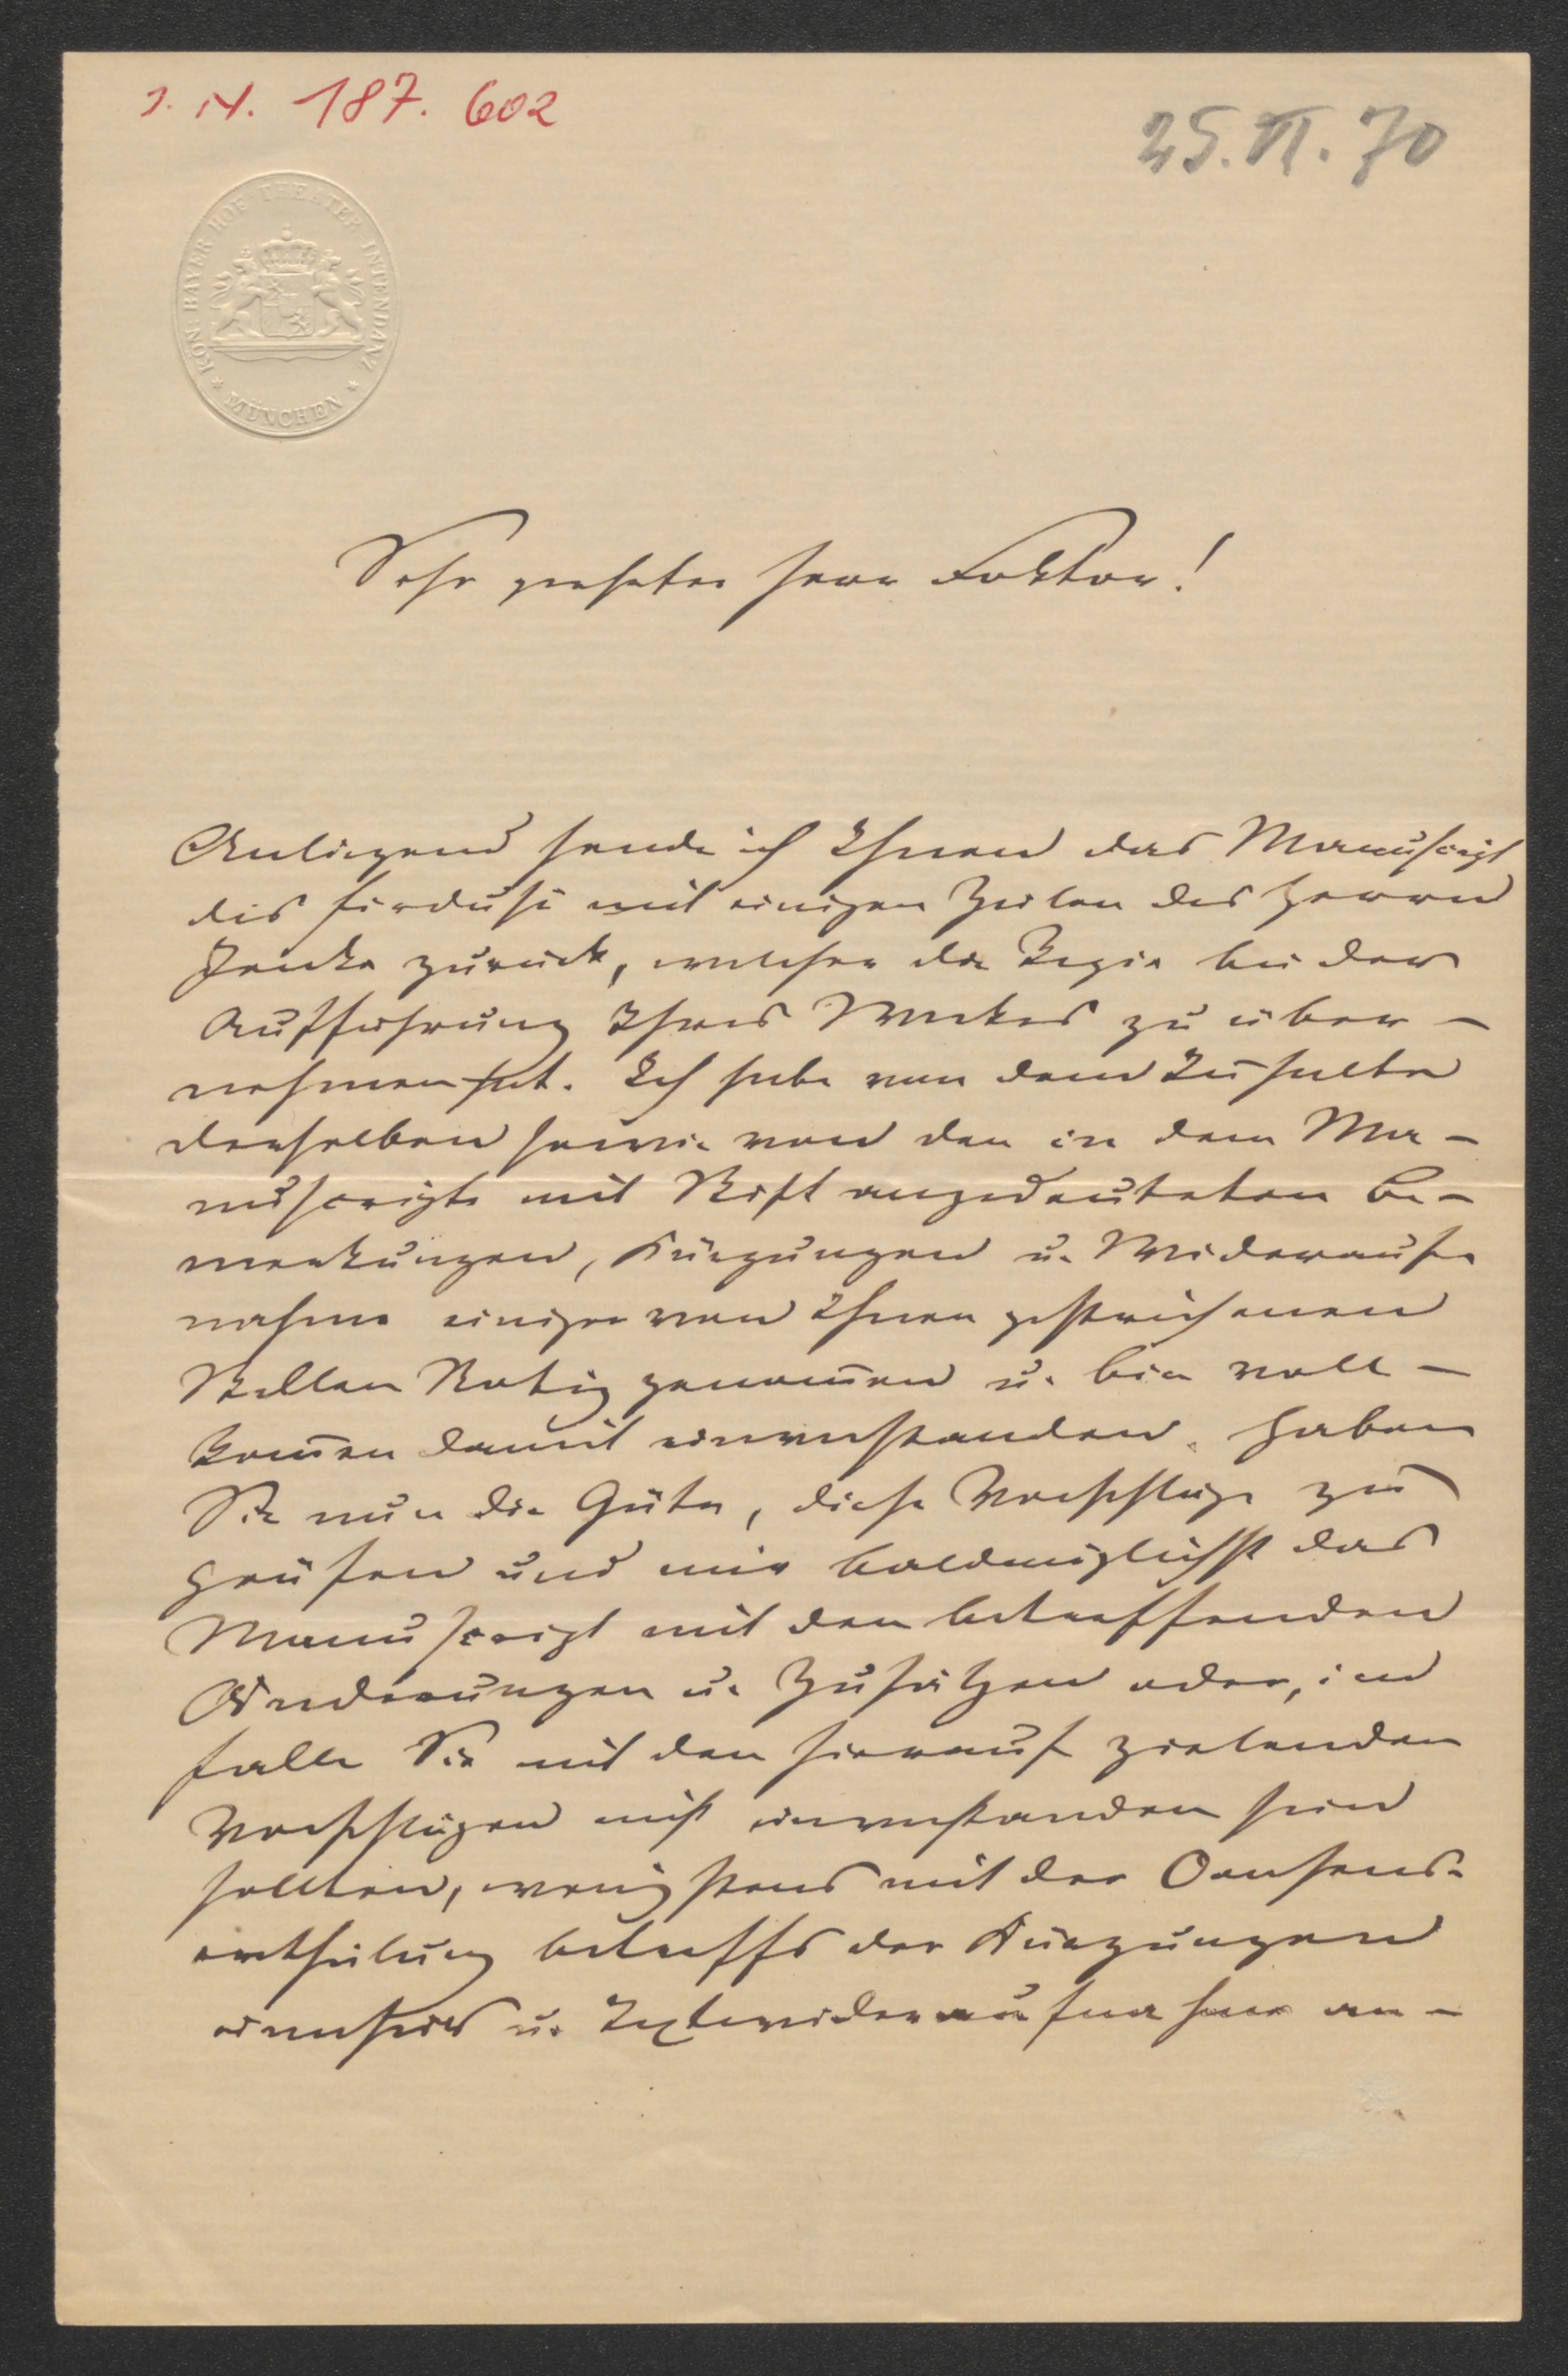 J. N. 187.602
25. VI. 70
KÖN: BAYER HOF THEATER INTENDANZ
* MÜNCHEN *
Sehr geehrter Herr Doktor!
Anliegend sende ich Ihnen das Manuscript
des Firdusi mit einigen Zeilen des Herrn
Jenke zurück, welcher die Regie bei der
Aufführung Ihres Werkes zu über-
nehmen hat. Ich habe von dem Inhalte
derselben sowie von den in dem Ma-
nuscripte mit Stift angedeuteten Be-
merkungen, Kürzungen u. Wiederauf-
nahme einiger von Ihnen gestrichenen
Stellen Notiz genom̅en u. bin voll-
kom̅en damit einverstanden. Haben
Sie nun die Güte, diese Vorschläge zu
prüfen und mir baldmöglichst das
Manuscript mit den betreffenden
Änderungen u. Zusätzen oder, im
Falle Sie mit den hierauf zielenden
Vorschlägen nicht einverstanden sein
sollten, wenigstens mit der Consens-
ertheilung betreffs der Kürzungen
einerseits u. Textwiederaufnahme an-